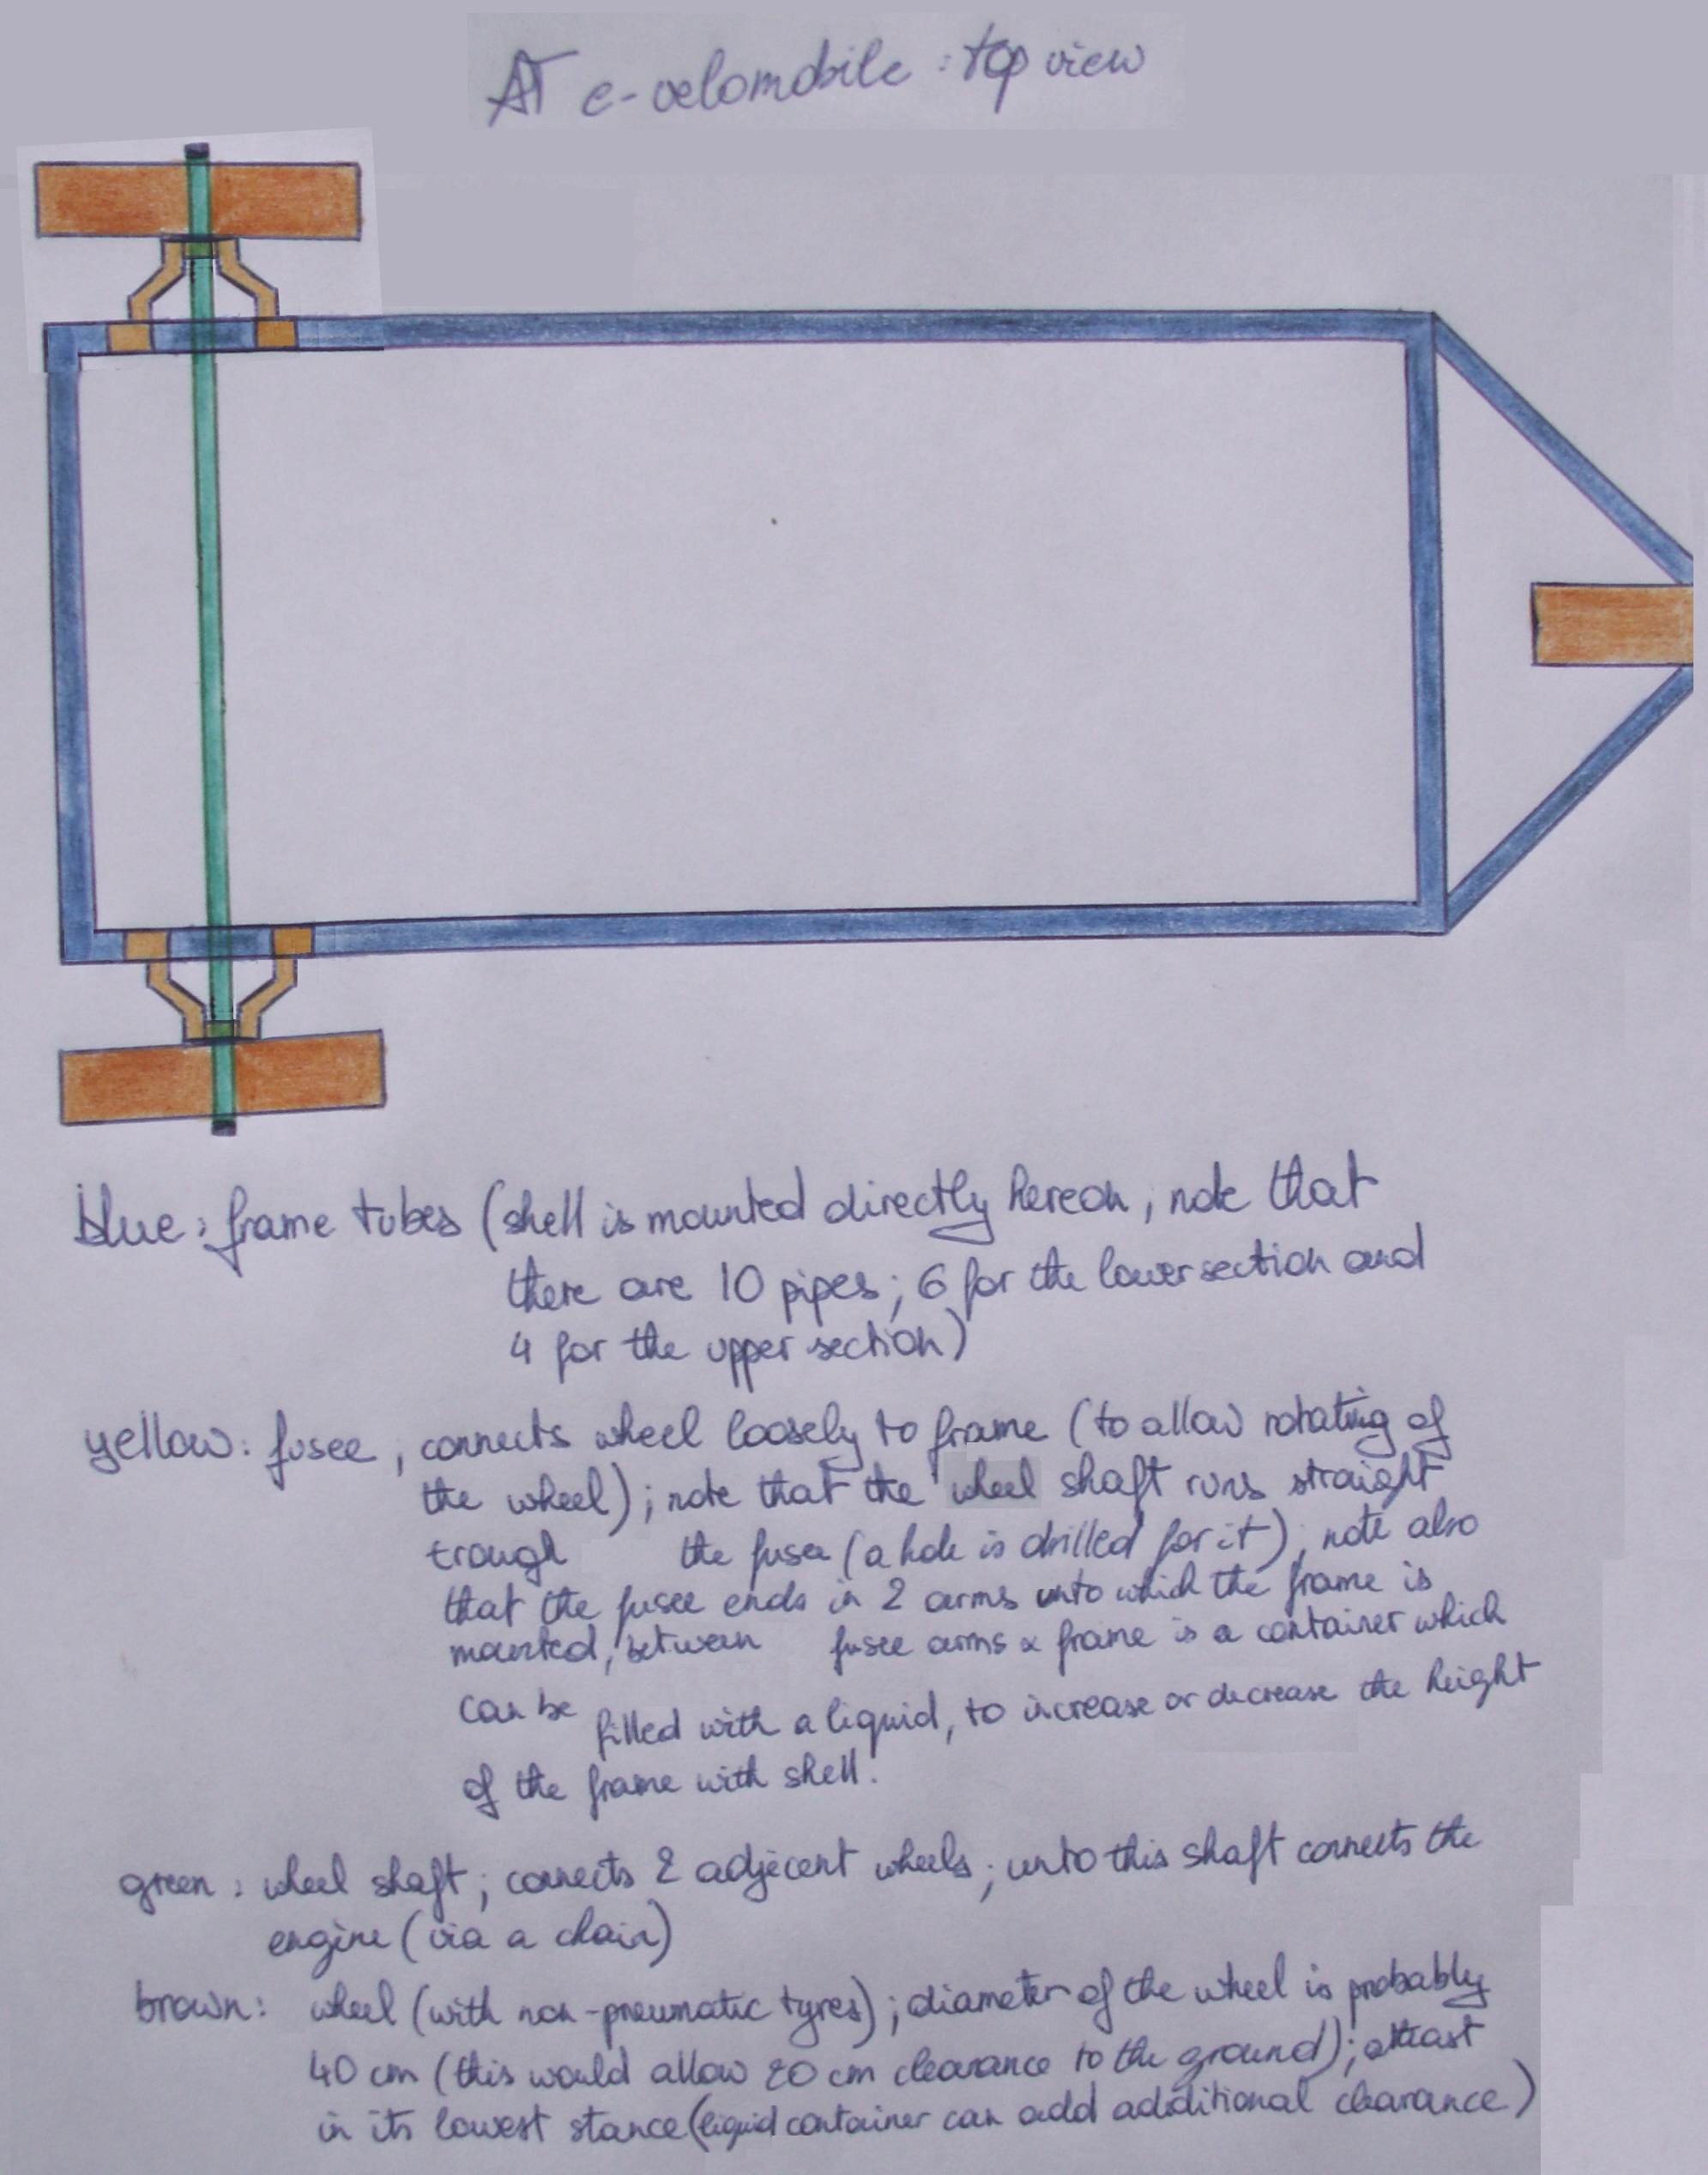 AT e-velomobile : top view
blue : frame tubes (shell is mounted directly hereon, note that
there are 10 pipes; 6 for the lower section and
4 for the upper section)
yellow : fusee, connects wheel loosely to frame (to allow rotating of
the wheel); note that the wheel shaft runs straight
trough the fusee (a hole is drilled for it), note also
that the fusee ends in 2 arms unto which the frame is
mounted, between fusee arms & frame is a container which
can be filled with a liquid, to increase or decrease the height
of the frame with shell.
green : wheel shaft; connects 2 adjecent wheels; unto this shaft connects the
engine (via a chain)
brown : wheel (with non-pneumatic tyres); diameter of the wheel is probably
40 cm (this would allow 20 cm clearance to the ground); atleast
in its lowest stance (liquid container can add additional clearance)